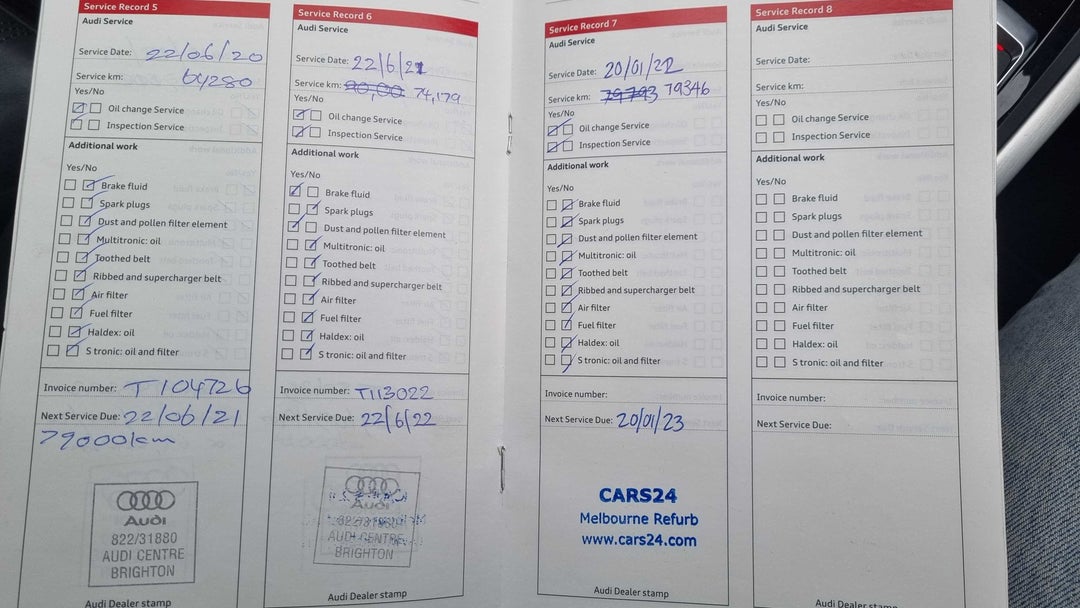 Service Record 5
Audi Service
Service Date: 22/06/20
Service km: 64280
Yes/No
Oil change Service
Inspection Service
Additional work
Yes/No
Brake fluid
Spark plugs
Dust and pollen filter element
Multitronic: oil
Toothed belt
Ribbed and supercharger belt
Air filter
Fuel filter
Haldex: oil
S tronic: oil and filter
Invoice number: T104726
Next Service Due: 22/06/21
79000km
Audi
822/31880
AUDI CENTRE
BRIGHTON
Audi Dealer stamp
Service Record 6
Audi Service
Service Date: 22/6/21
Service km: 74,179
Yes/No
Oil change Service
Inspection Service
Additional work
Yes/No
Brake fluid
Spark plugs
Dust and pollen filter element
Multitronic: oil
Toothed belt
Ribbed and supercharger belt
Air filter
Fuel filter
Haldex: oil
S tronic: oil and filter
Invoice number: T113022
Next Service Due: 22/6/22
Audi
AUDI CENTRE
BRIGHTON
Audi Dealer stamp
Service Record 7
Audi Service
Service Date: 20/01/22
Service km: 79793 79346
Yes/No
Oil change Service
Inspection Service
Additional work
Yes/No
Brake fluid
Spark plugs
Dust and pollen filter element
Multitronic: oil
Toothed belt
Ribbed and supercharger belt
Air filter
Fuel filter
Haldex: oil
S tronic: oil and filter
Invoice number:
Next Service Due: 20/01/23
CARS24
Melbourne Refurb
www.cars24.com
Audi Dealer stamp
Service Record 8
Audi Service
Service Date:
Service km:
Yes/No
Oil change Service
Inspection Service
Additional work
Yes/No
Brake fluid
Spark plugs
Dust and pollen filter element
Multitronic: oil
Toothed belt
Ribbed and supercharger belt
Air filter
Fuel filter
Haldex: oil
S tronic: oil and filter
Invoice number:
Next Service Due:
Audi Dealer stamp